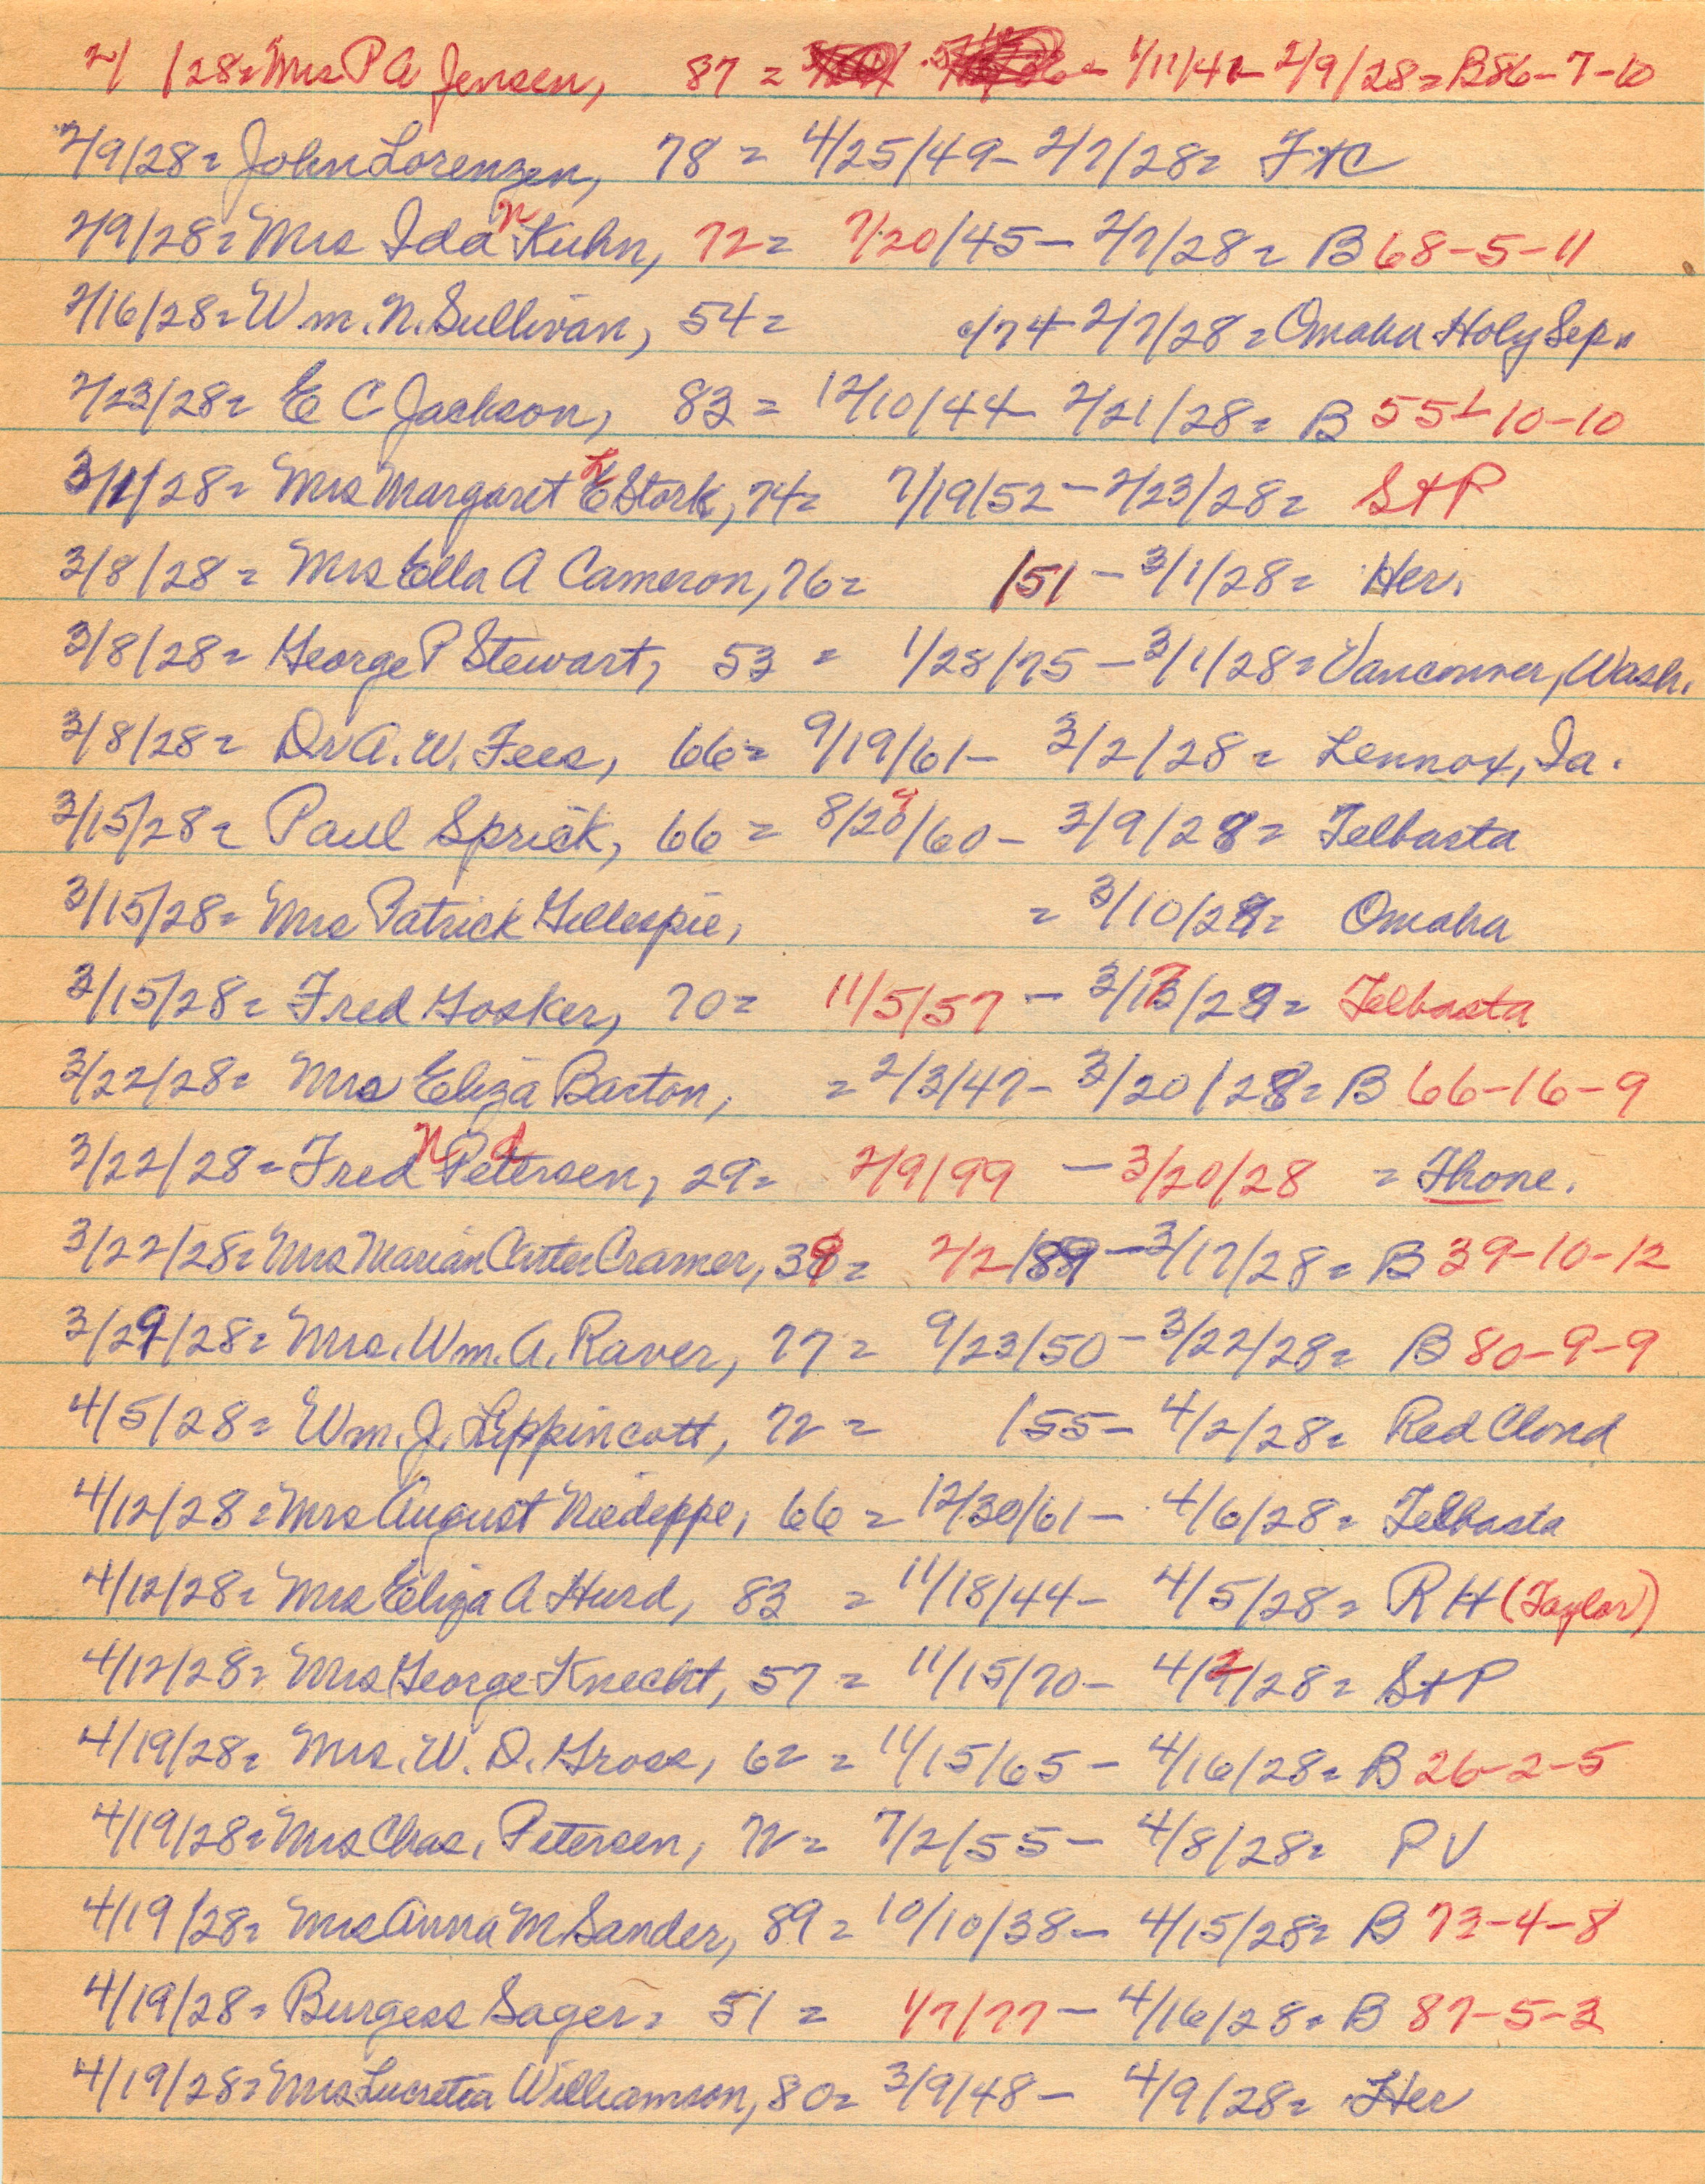 2/ /28= Mrs P A Jensen, 87 = 1/11/41- 2/9/28= B86-7-10
2/9/28= John Lorenzen, 78 = 4/25/49- 2/7/28= FTC
2/9/28= Mrs Ida N Kuhn, 72= 7/20/45- 2/7/28= B 68-5-11
2/16/28= Wm. N. Sullivan, 54= /74- 2/7/28= Omaha Holy Sep.
2/23/28= E C Jackson, 83= 12/10/44- 2/21/28= B 55½-10-10
3/1/28= Mrs Margaret E Stork, 74= 7/19/52-2/23/28= StP
3/8/28= Mrs Ella A Cameron, 76= /51-3/1/28= Her.
3/8/28= George P Stewart, 53 = 1/28/75-3/1/28= Vancouver, Wash.
3/8/28= Dr A. W. Fees, 66= 9/19/61- 3/2/28= Lennox, Ia.
3/15/28= Paul Sprick, 66= 8/24/60- 3/9/28= Telbasta
3/15/28= Mrs Patrick Gillespie, = 3/10/28= Omaha
3/15/28= Fred Gosker, 70= 11/5/57- 3/13/28= Telbasta
3/22/28= Mrs Eliza Barton, = 2/3/47- 3/20/28= B 66-16-9
3/22/28= Fred N Petersen, 29= 2/9/99 -3/20/28 = Thone.
3/22/28= Mrs Marian Carter Cramer, 39= 2/2/89-3/17/28= B 39-10-12
3/29/28= Mrs. Wm. A. Raver, 77= 9/23/50-3/22/28= B 80-9-9
4/5/28= Wm. J. Lippincott, 72= /55- 4/2/28= Red Cloud
4/12/28= Mrs August Niedeppe, 66= 12/30/61- 4/6/28= Telbasta
4/12/28= Mrs Eliza A Hurd, 83 = 11/18/44- 4/5/28= RH (Taylor)
4/12/28= Mrs George Knecht, 57= 11/15/70- 4/2/28= StP
4/19/28= Mrs. W. D. Gross, 62= 11/15/65- 4/16/28= B 26-2-5
4/19/28= Mrs Chas. Petersen, 72= 7/2/55- 4/8/28= PV
4/19/28= Mrs Anna M Sander, 89= 10/10/38- 4/15/28= B 73-4-8
4/19/28= Burgess Sager= 51= 1/7/77-4/16/28= B 87-5-3
4/19/28= Mrs Lucretia Williamson, 80= 3/9/48- 4/9/28= Her